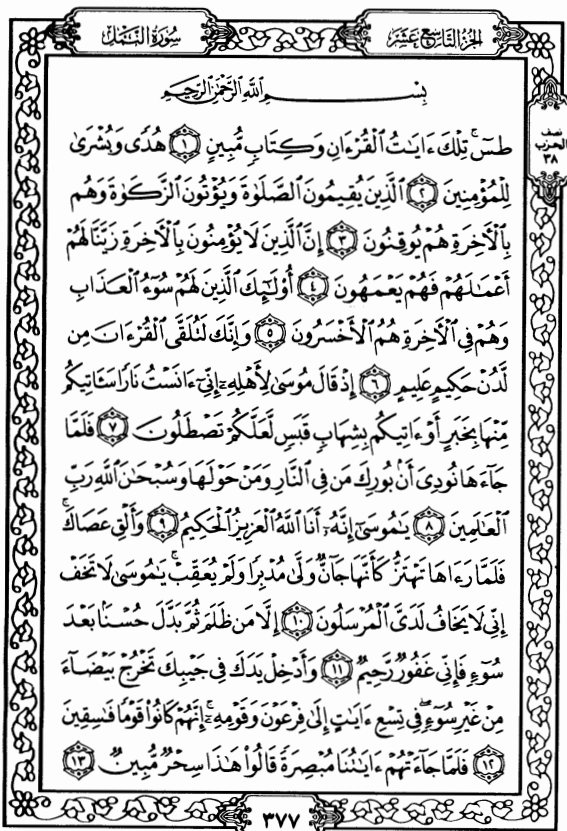 الجزء التاسع عشر
سورة النمل
نصف
الحزب
٣٨
بِسْمِ ٱللَّهِ ٱلرَّحْمَٰنِ ٱلرَّحِيمِ
طسٓۚ تِلْكَ ءَايَٰتُ ٱلْقُرْءَانِ وَكِتَابٍ مُّبِينٍ ١ هُدًى وَبُشْرَىٰ
لِلْمُؤْمِنِينَ ٢ ٱلَّذِينَ يُقِيمُونَ ٱلصَّلَوٰةَ وَيُؤْتُونَ ٱلزَّكَوٰةَ وَهُم
بِٱلْءَاخِرَةِ هُمْ يُوقِنُونَ ٣ إِنَّ ٱلَّذِينَ لَا يُؤْمِنُونَ بِٱلْءَاخِرَةِ زَيَّنَّا لَهُمْ
أَعْمَٰلَهُمْ فَهُمْ يَعْمَهُونَ ٤ أُو۟لَٰٓئِكَ ٱلَّذِينَ لَهُمْ سُوٓءُ ٱلْعَذَابِ
وَهُمْ فِى ٱلْءَاخِرَةِ هُمُ ٱلْأَخْسَرُونَ ٥ وَإِنَّكَ لَتُلَقَّى ٱلْقُرْءَانَ مِن
لَّدُنْ حَكِيمٍ عَلِيمٍ ٦ إِذْ قَالَ مُوسَىٰ لِأَهْلِهِۦٓ إِنِّىٓ ءَانَسْتُ نَارًا سَـَٔاتِيكُم
مِّنْهَا بِخَبَرٍ أَوْ ءَاتِيكُم بِشِهَابٍ قَبَسٍ لَّعَلَّكُمْ تَصْطَلُونَ ٧ فَلَمَّا
جَآءَهَا نُودِىَ أَنۢ بُورِكَ مَن فِى ٱلنَّارِ وَمَنْ حَوْلَهَا وَسُبْحَٰنَ ٱللَّهِ رَبِّ
ٱلْعَٰلَمِينَ ٨ يَٰمُوسَىٰٓ إِنَّهُۥٓ أَنَا ٱللَّهُ ٱلْعَزِيزُ ٱلْحَكِيمُ ٩ وَأَلْقِ عَصَاكَۚ
فَلَمَّا رَءَاهَا تَهْتَزُّ كَأَنَّهَا جَآنٌّ وَلَّىٰ مُدْبِرًا وَلَمْ يُعَقِّبْۚ يَٰمُوسَىٰ لَا تَخَفْ
إِنِّى لَا يَخَافُ لَدَىَّ ٱلْمُرْسَلُونَ ١٠ إِلَّا مَن ظَلَمَ ثُمَّ بَدَّلَ حُسْنًۢا بَعْدَ
سُوٓءٍ فَإِنِّى غَفُورٌ رَّحِيمٌ ١١ وَأَدْخِلْ يَدَكَ فِى جَيْبِكَ تَخْرُجْ بَيْضَآءَ
مِنْ غَيْرِ سُوٓءٍۖ فِى تِسْعِ ءَايَٰتٍ إِلَىٰ فِرْعَوْنَ وَقَوْمِهِۦٓۚ إِنَّهُمْ كَانُوا۟ قَوْمًا فَٰسِقِينَ
١٢ فَلَمَّا جَآءَتْهُمْ ءَايَٰتُنَا مُبْصِرَةً قَالُوا۟ هَٰذَا سِحْرٌ مُّبِينٌ ١٣
٣٧٧